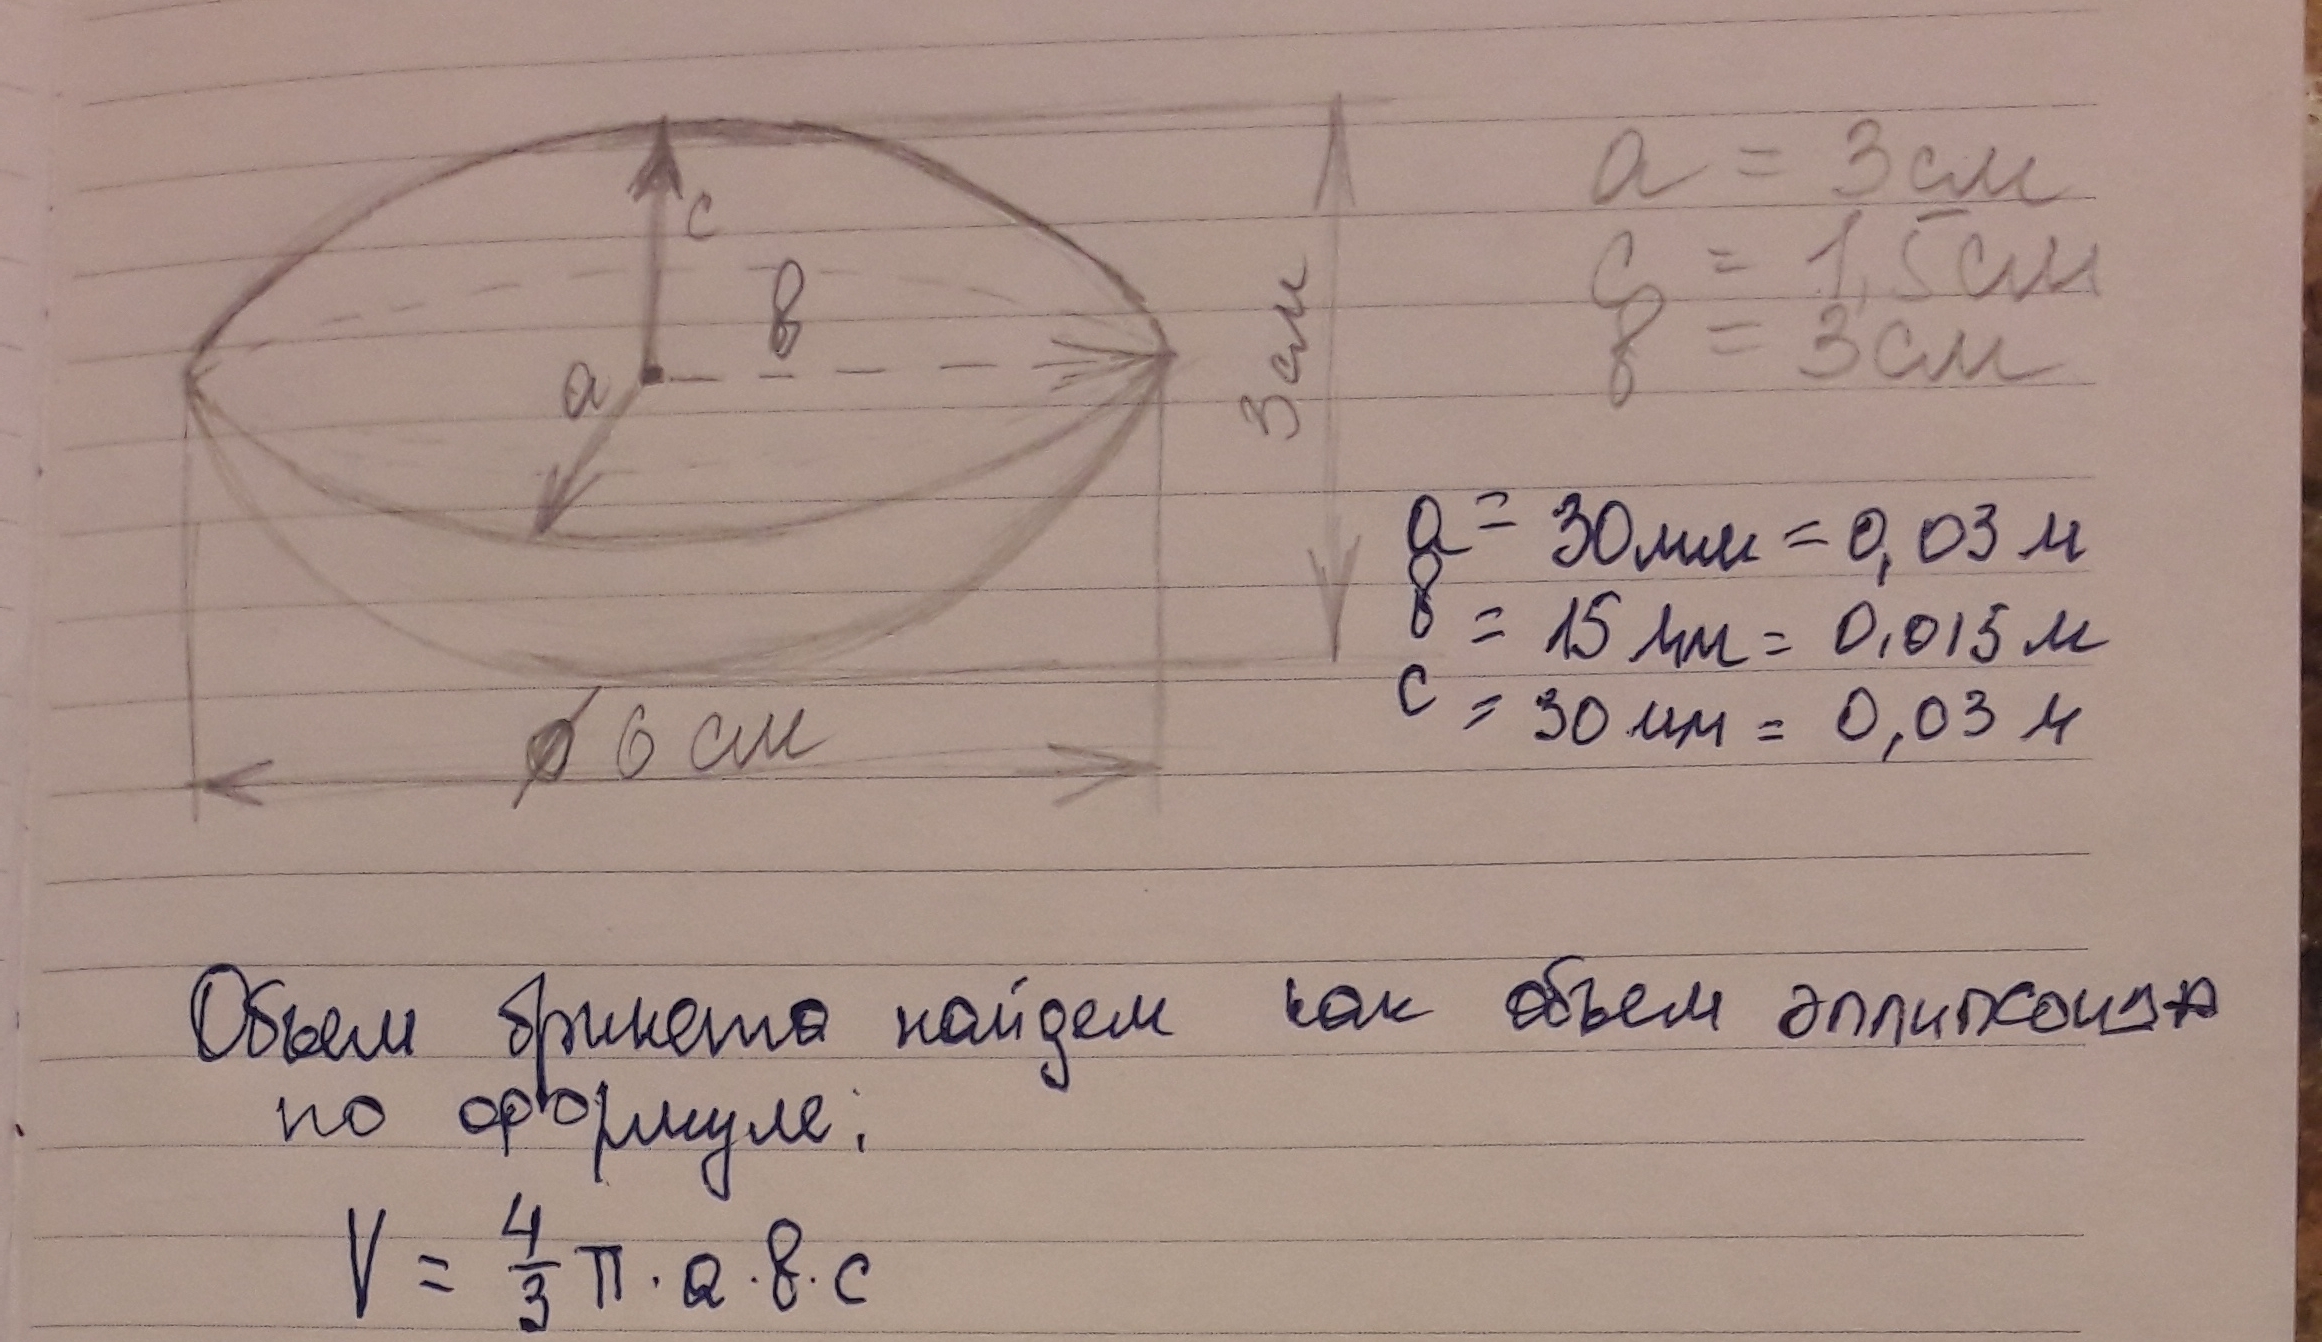 c
в
a
3 см
⌀ 6 см
a = 3 см
c = 1,5 см
в = 3 см
a = 30 мм = 0,03 м
в = 15 мм = 0,015 м
c = 30 мм = 0,03 м
Объем брикета найдем как объем эллипсоида
по формуле:
V = 4/3 π · a · в · c